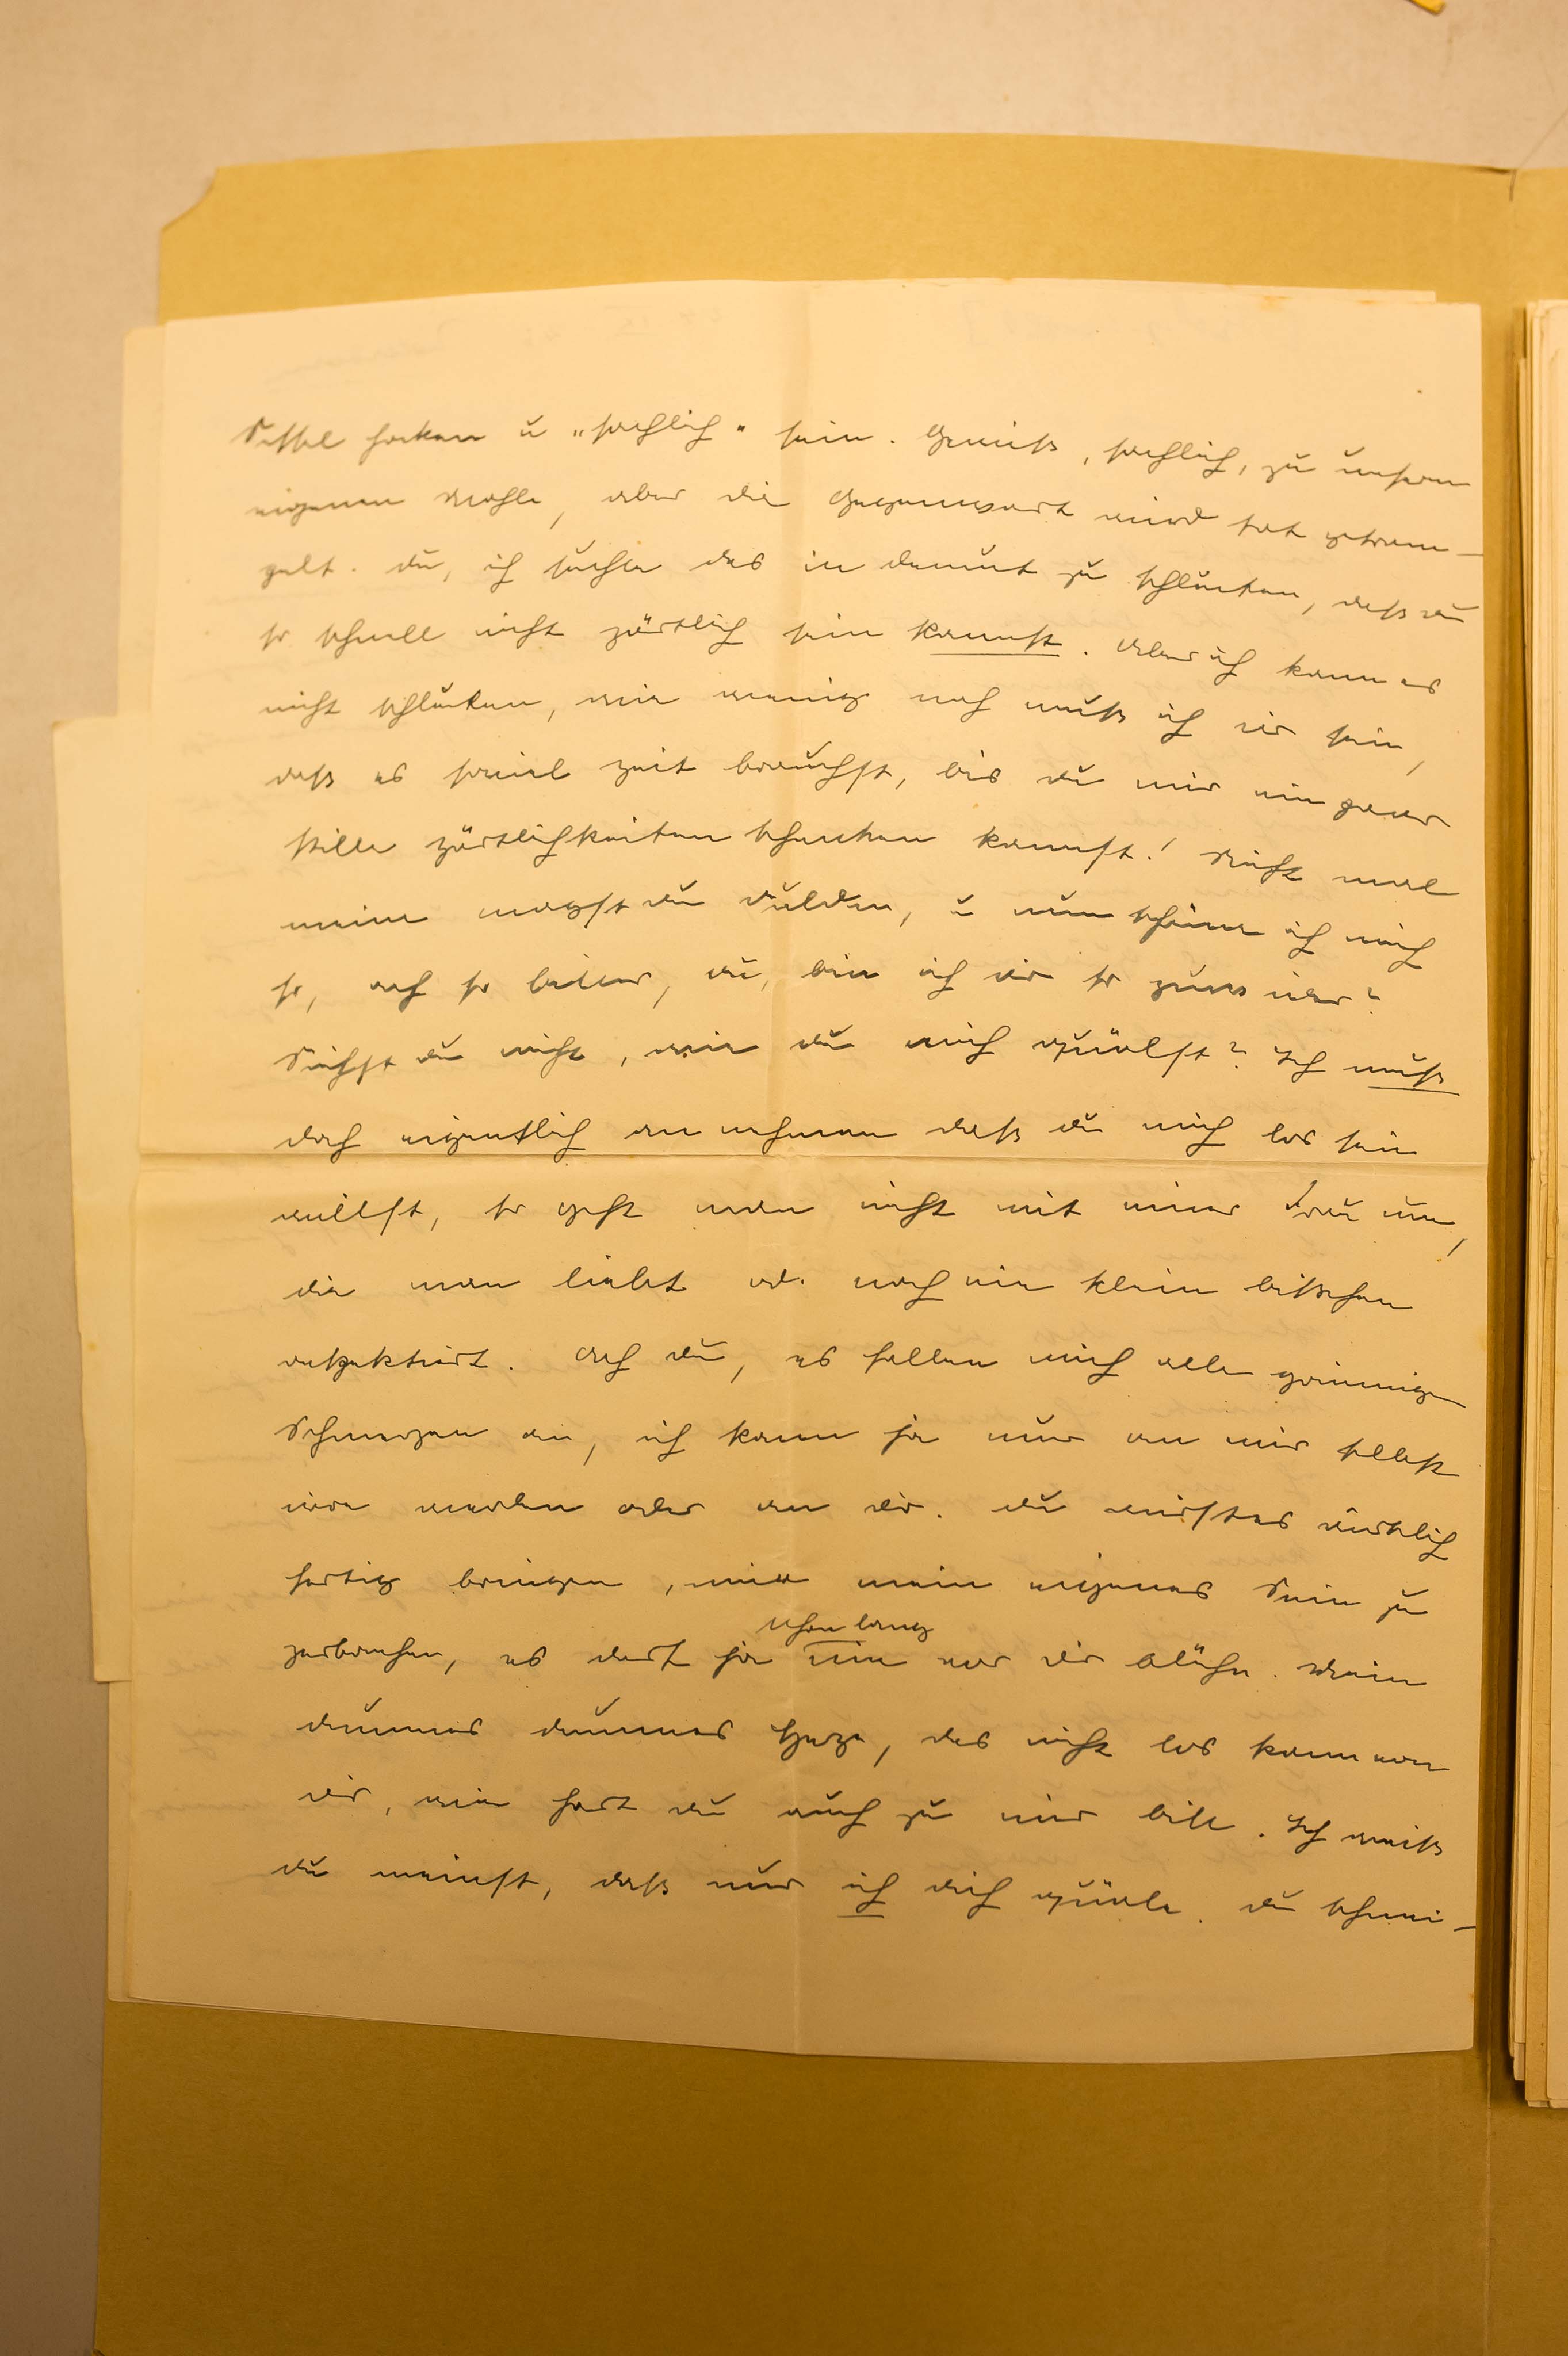 Sessel hocken u „sachlich“ sein. Gewiß, sachlich, zu unserm
eigenen Wohle, aber die Gegenwart wird tot getram-
pelt. Du, ich suchte das in Demut zu schlucken, daß du
so schnell nicht zärtlich sein kannst. Aber ich kann es
nicht schlucken, wie wenig noch muß ich dir sein,
daß es soviel Zeit brauchst, bis du mir ein paar
stille Zärtlichkeiten schenken kannst! Nicht mal
meine magst du dulden, u nun schäme ich mich
so, ach so bitter, du, bin ich dir so zuwider?
Siehst du nicht, wie du mich quälst? Ich muß
doch eigentlich annehmen daß du mich los sein
willst, so geht man nicht mit einer Frau um,
die man liebt od. noch ein klein bißchen
respektiert. Ach du, es fallen mich alle grimmigen
Schmerzen an, ich kann ja nur an mir selbst
irre werden oder an dir. Du wirst es wirklich
fertig bringen, mir mein eigenes Sein zu
schon lang
zerbrechen, es darf ja nie vor dir blühn. Mein
dummes dummes Herze, das nicht los kann von
dir, wie hart du auch zu mir bist. Ich weiß
du meinst, daß nur ich dich quäle. Du schwei-